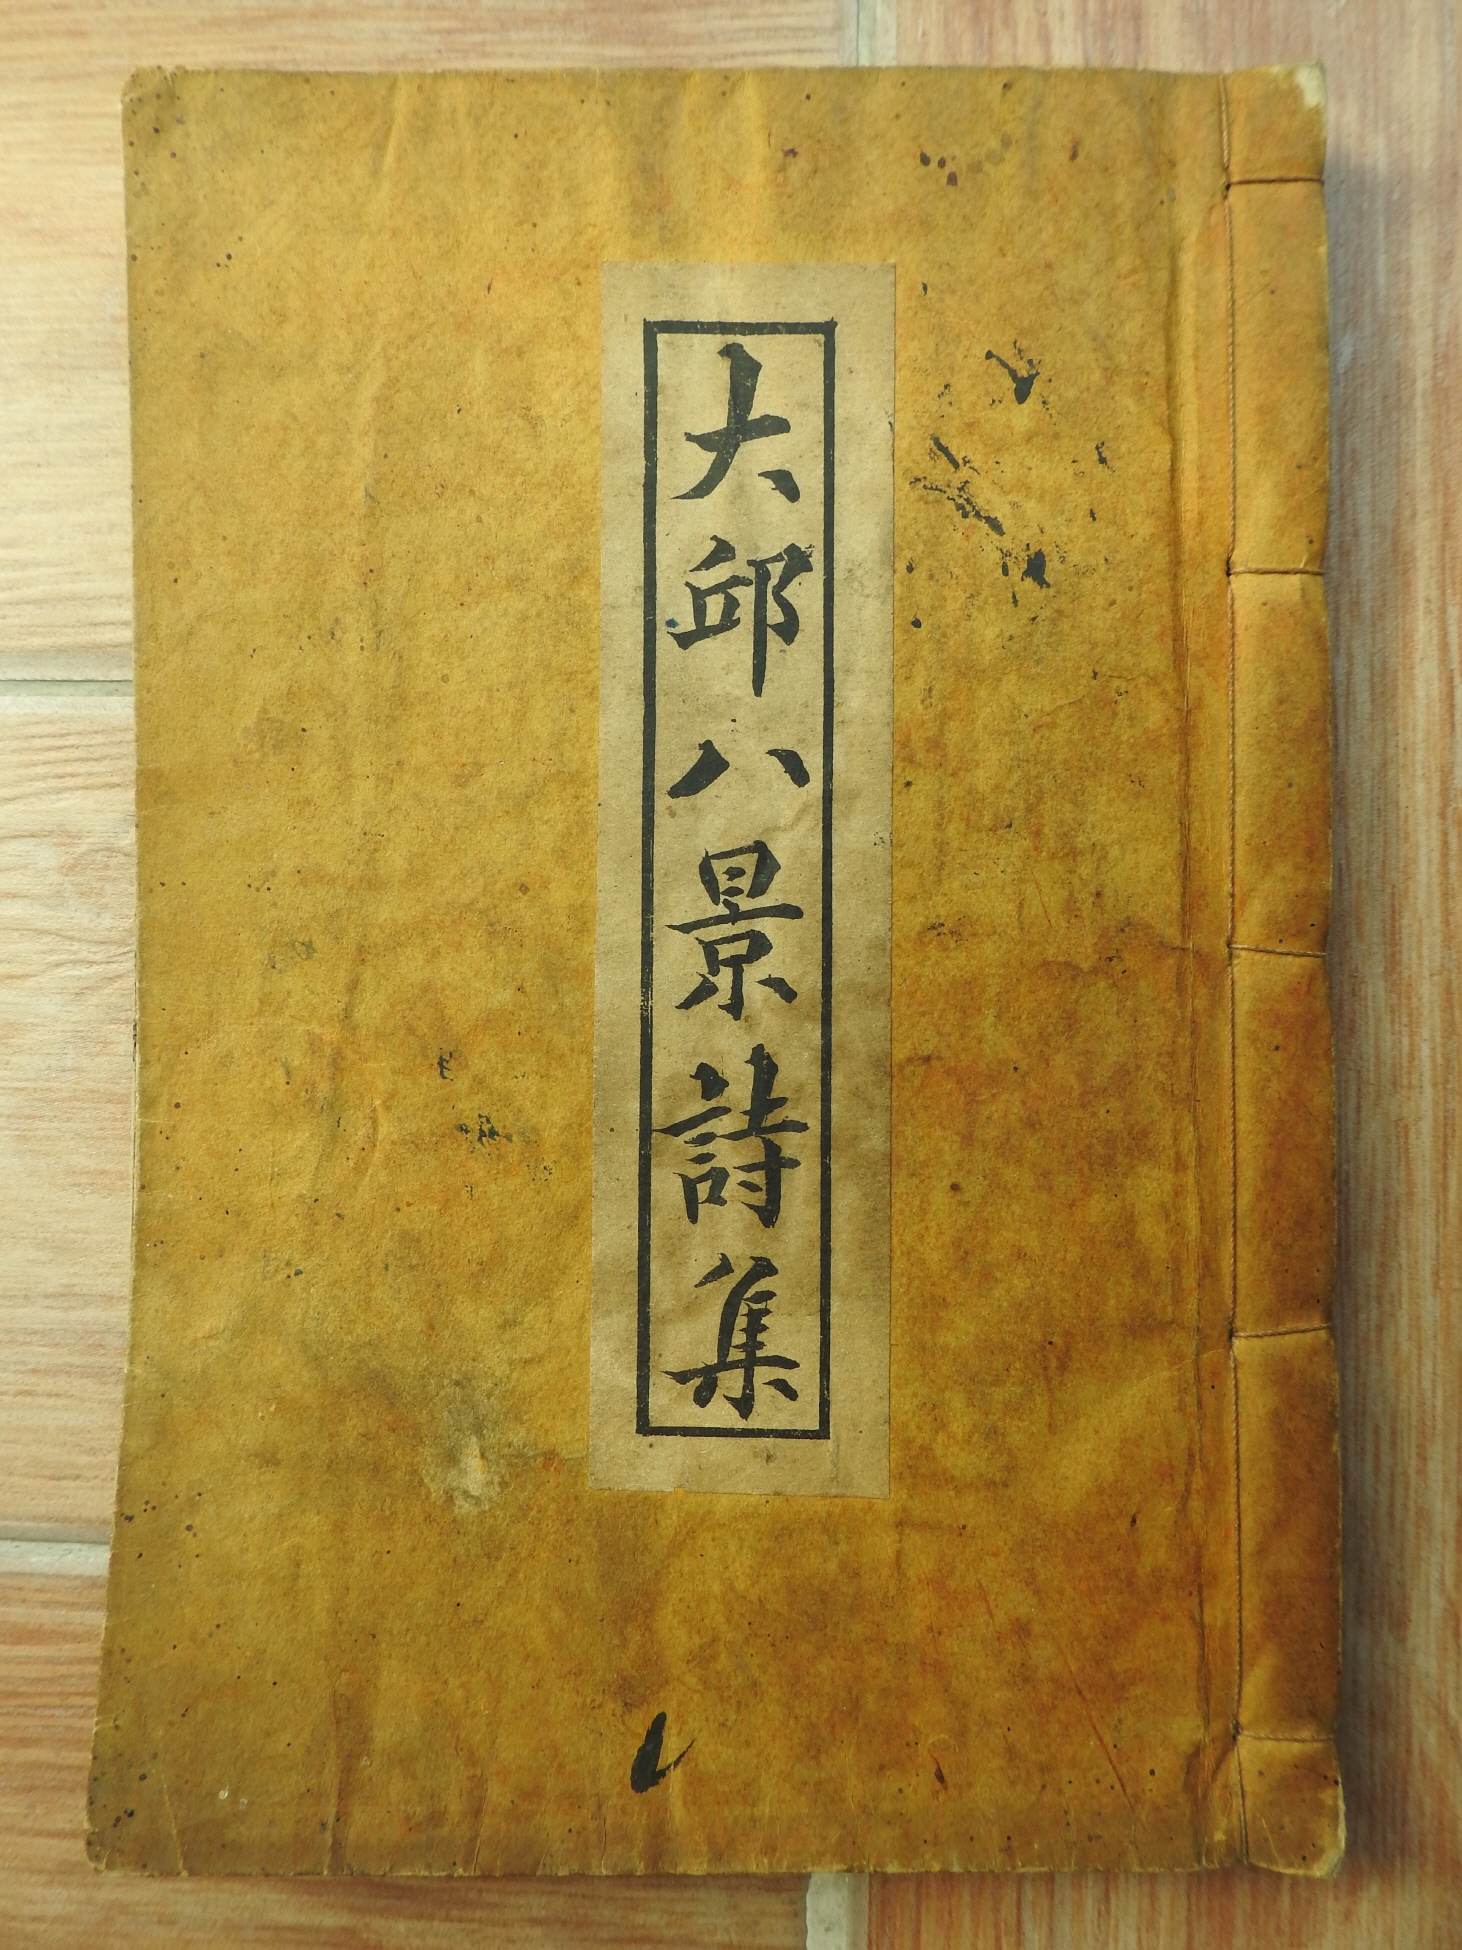 大邱八景詩集